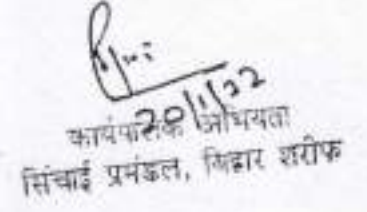 20/1/22
कार्यपालक अभियंता
सिंचाई प्रमंडल, बिहार शरीफ